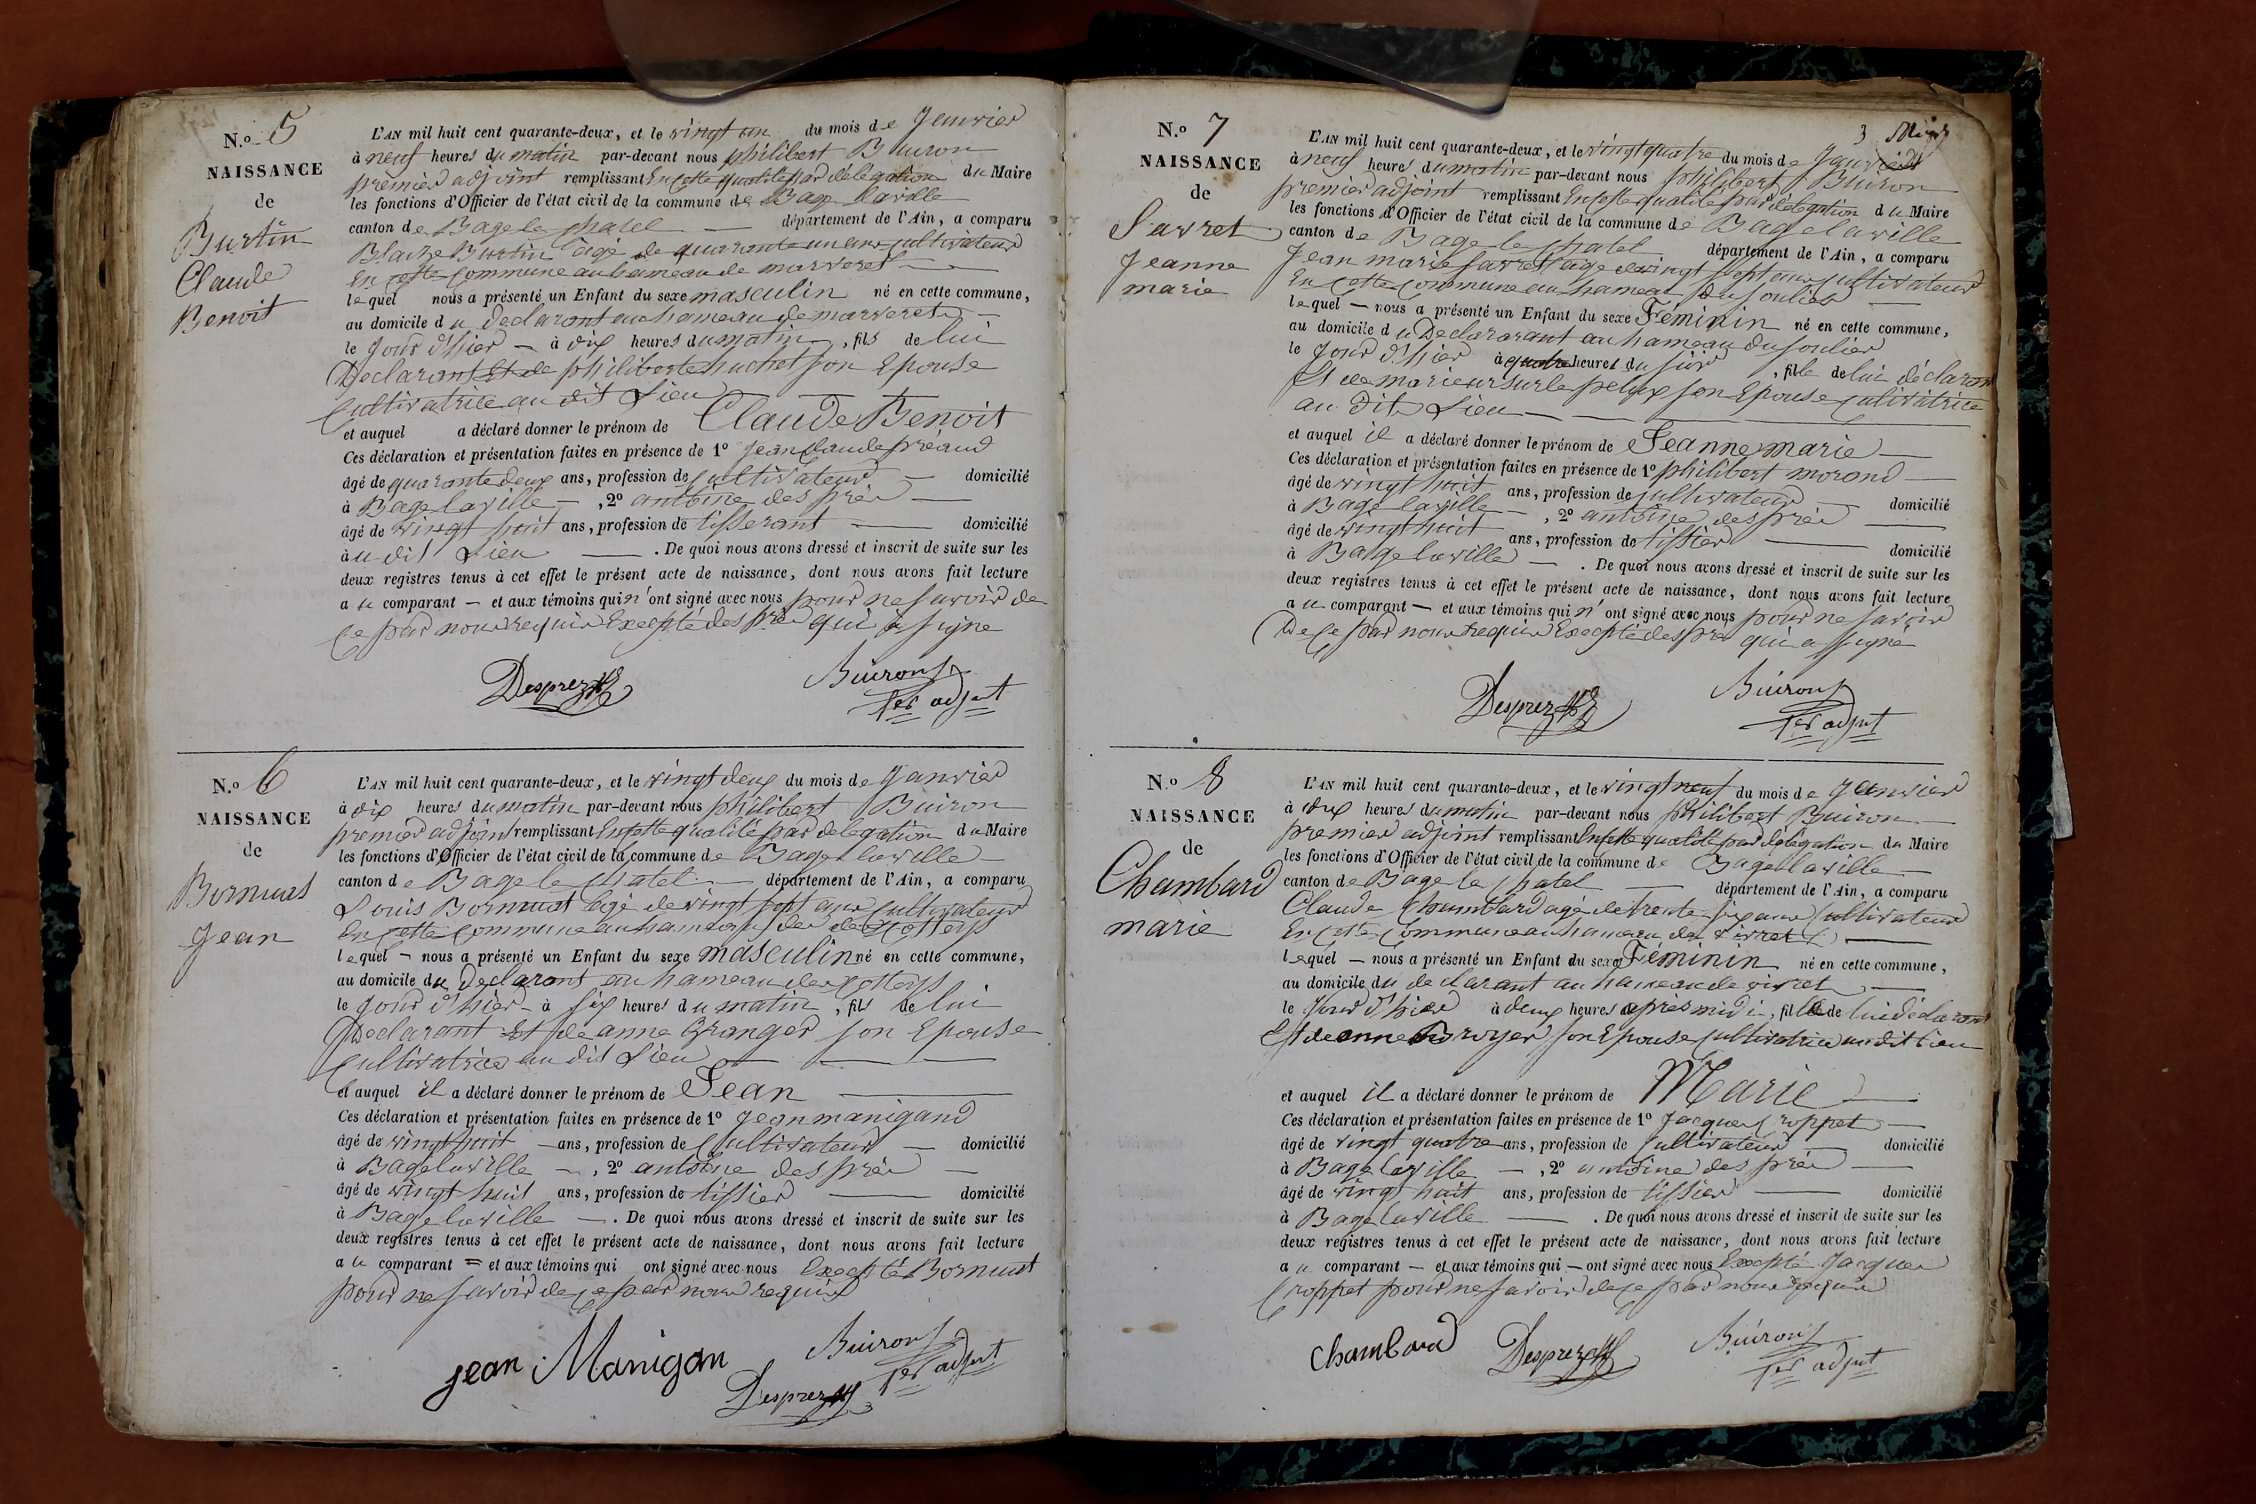 N.o 5
NAISSANCE
de
Burtin
Claude
Benoit
L'AN mil huit cent quarante-deux, et le vingt un du mois de Janvier
à neuf heures du matin par-devant nous philibert Buiron
premier adjoint remplissant En cette qualité par délégation du Maire
les fonctions d'Officier de l'état civil de la commune de Bagé laville
canton de Bagé le chatel département de l'Ain, a comparu
Blaise Burtin agé de quarante un ans cultivateur
En cette commune au hameau de
lequel nous a présenté un Enfant du sexe masculin né en cette commune,
au domicile du declarant au hameau de
le Jour d'hier à dix heures du matin, fils de lui
Declarant Et de philiberte huchet son Epouse
Cultivatrice au dit Lieu
et auquel a déclaré donner le prénom de Claude Benoit
Ces déclaration et présentation faites en présence de 1o Jean Claude préaud
âgé de quarante deux ans, profession de cultivateur domicilié
à Bagé laville, 2o antoine des prés
âgé de vingt huit ans, profession de tisserant domicilié
à u dit Lieu. De quoi nous avons dressé et inscrit de suite sur les
deux registres tenus à cet effet le présent acte de naissance, dont nous avons fait lecture
a u comparant et aux témoins qui n'ont signé avec nous pour ne savoir de
ce par nous requis Excepté des prés qui a signé
Desprez
Buiron
1er adjnt
N.o 6
NAISSANCE
de
Jean
L'AN mil huit cent quarante-deux, et le vingt deux du mois de Janvier
à dix heures du matin par-devant nous philibert Buiron
premier adjoint remplissant En cette qualité par delegation du Maire
les fonctions d'Officier de l'état civil de la commune de Bagé laville
canton de Bagé le chatel département de l'Ain, a comparu
Louis agé de vingt sept ans cultivateur
En cette commune au hameau
lequel nous a présenté un Enfant du sexe masculin né en cette commune,
au domicile du Declarant au hameau
le Jour d'hier à six heures du matin, fils de lui
Declarant Et de anne Granger son Epouse
Cultivatrice au dit Lieu
et auquel il a déclaré donner le prénom de Jean
Ces déclaration et présentation faites en présence de 1o Jean manigand
âgé de vingt huit ans, profession de Cultivateur domicilié
à Bagé laville, 2o antoine des prés
âgé de vingt huit ans, profession de tissier domicilié
à Bagé laville. De quoi nous avons dressé et inscrit de suite sur les
deux registres tenus à cet effet le présent acte de naissance, dont nous avons fait lecture
a u comparant et aux témoins qui ont signé avec nous Excepté
pour ne savoir de ce par nous requis
jean Manigan
Buiron
1er adjnt
Desprez
3
N.o 7
NAISSANCE
de
Savret
Jeanne
marie
L'AN mil huit cent quarante-deux, et le vingt quatre du mois de Janvier
à neuf heures du matin par-devant nous philibert Buiron
premier adjoint remplissant En cette qualité par délégation du Maire
les fonctions d'Officier de l'état civil de la commune de Bagé laville
canton de Bagé le chatel département de l'Ain, a comparu
Jean marie Savret agé de vingt sept ans cultivateur
En cette commune au hameau du soulier
lequel nous a présenté un Enfant du sexe Féminin né en cette commune,
au domicile du Declararant au hameau du soulier
le Jour d'hier à quatre heures du soir, fille de lui déclarant
Et de marie son Epouse cultivatrice
au dit Lieu
et auquel il a déclaré donner le prénom de Jeanne marie
Ces déclaration et présentation faites en présence de 1o philibert morand
âgé de vingt huit ans, profession de cultivateur domicilié
à Bagé laville, 2o antoine des prés
âgé de vingt huit ans, profession de tissier domicilié
à Bagé laville. De quoi nous avons dressé et inscrit de suite sur les
deux registres tenus à cet effet le présent acte de naissance, dont nous avons fait lecture
a u comparant et aux témoins qui n'ont signé avec nous pour ne savoir
De ce par nous requis Excepté des prés qui a signé
Desprez
Buiron
1er adjnt
N.o 8
NAISSANCE
de
Chambard
marie
L'AN mil huit cent quarante-deux, et le vingt neuf du mois de Janvier
à dix heures du matin par-devant nous philibert Buiron
premier adjoint remplissant En cette qualité par délégation du Maire
les fonctions d'Officier de l'état civil de la commune de Bagé laville
canton de Bagé le chatel département de l'Ain, a comparu
Claude Chambard agé de trente six ans Cultivateur
En cette commune au hameau de vivret
lequel nous a présenté un Enfant du sexe Féminin né en cette commune,
au domicile du declarant au hameau de vivret
le Jour d'hier à deux heures après midi, fille de lui déclarant
Et de anne Broyer son Epouse Cultivatrice au dit lieu
et auquel il a déclaré donner le prénom de Marie
Ces déclaration et présentation faites en présence de 1o Jacques Croppet
âgé de vingt quatre ans, profession de Cultivateur domicilié
à Bagé laville, 2o antoine des prés
âgé de vingt huit ans, profession de tissier domicilié
à Bagé laville. De quoi nous avons dressé et inscrit de suite sur les
deux registres tenus à cet effet le présent acte de naissance, dont nous avons fait lecture
a u comparant et aux témoins qui ont signé avec nous Excepté Jacques
Croppet pour ne savoir de ce par nous requis
Chambard
Desprez
Buiron
1er adjnt